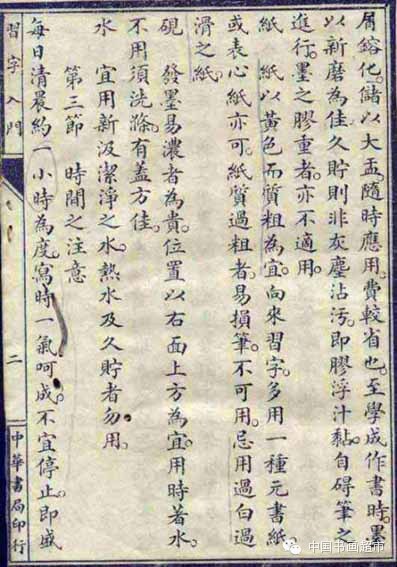 屑鎔化。儲以大盂。隨時應用。費較省也。至學成作書時。墨
以新磨為佳。久貯則非灰塵沾污。即膠浮汁黏。自碍筆之
進行。墨之膠重者。亦不適用。
紙　紙以黃色而質粗為宜。向來習字。多用一種元書紙。
或表心紙亦可。紙質過粗者。易損筆不可用。忌用過白過
滑之紙。
硯　發墨易濃者為貴。位置以右面上方為宜。用時著水
不用須洗滌。有蓋方佳。
水　宜用新汲潔淨之水。熱水及久貯者勿用。
第三節　時間之注意
每日清晨約一小時為度。寫時一氣呵成。不宜停止。即盛
習字入門
二
中華書局印行
中国书画超市